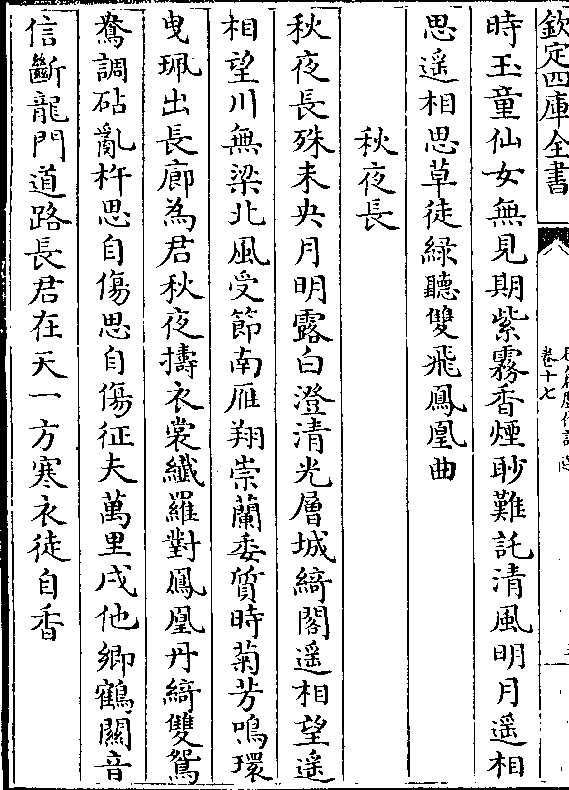 欽定四庫全書
卷十七
時玉童仙女無見期紫霧香煙眇難託清風明月遥相
思遥相思草徒緑聽雙飛鳳凰曲
秋夜長
秋夜長殊未央月明露白澄清光層城綺閣遥相望遥
相望川無梁北風受節南雁翔崇蘭委質時菊芳鳴環
曵珮出長廊為君秋夜擣衣裳纖羅對鳳凰丹綺雙鴛
鴦調砧亂杵思自傷思自傷征夫萬里戍他鄉鶴關音
信斷龍門道路長君在天一方寒衣徒自香